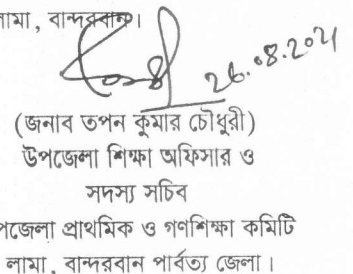 লামা, বান্দরবান।
26.08.2021
(জনাব তপন কুমার চৌধুরী)
উপজেলা শিক্ষা অফিসার ও
সদস্য সচিব
পজেলা প্রাথমিক ও গণশিক্ষা কমিটি
লামা, বান্দরবান পার্বত্য জেলা।